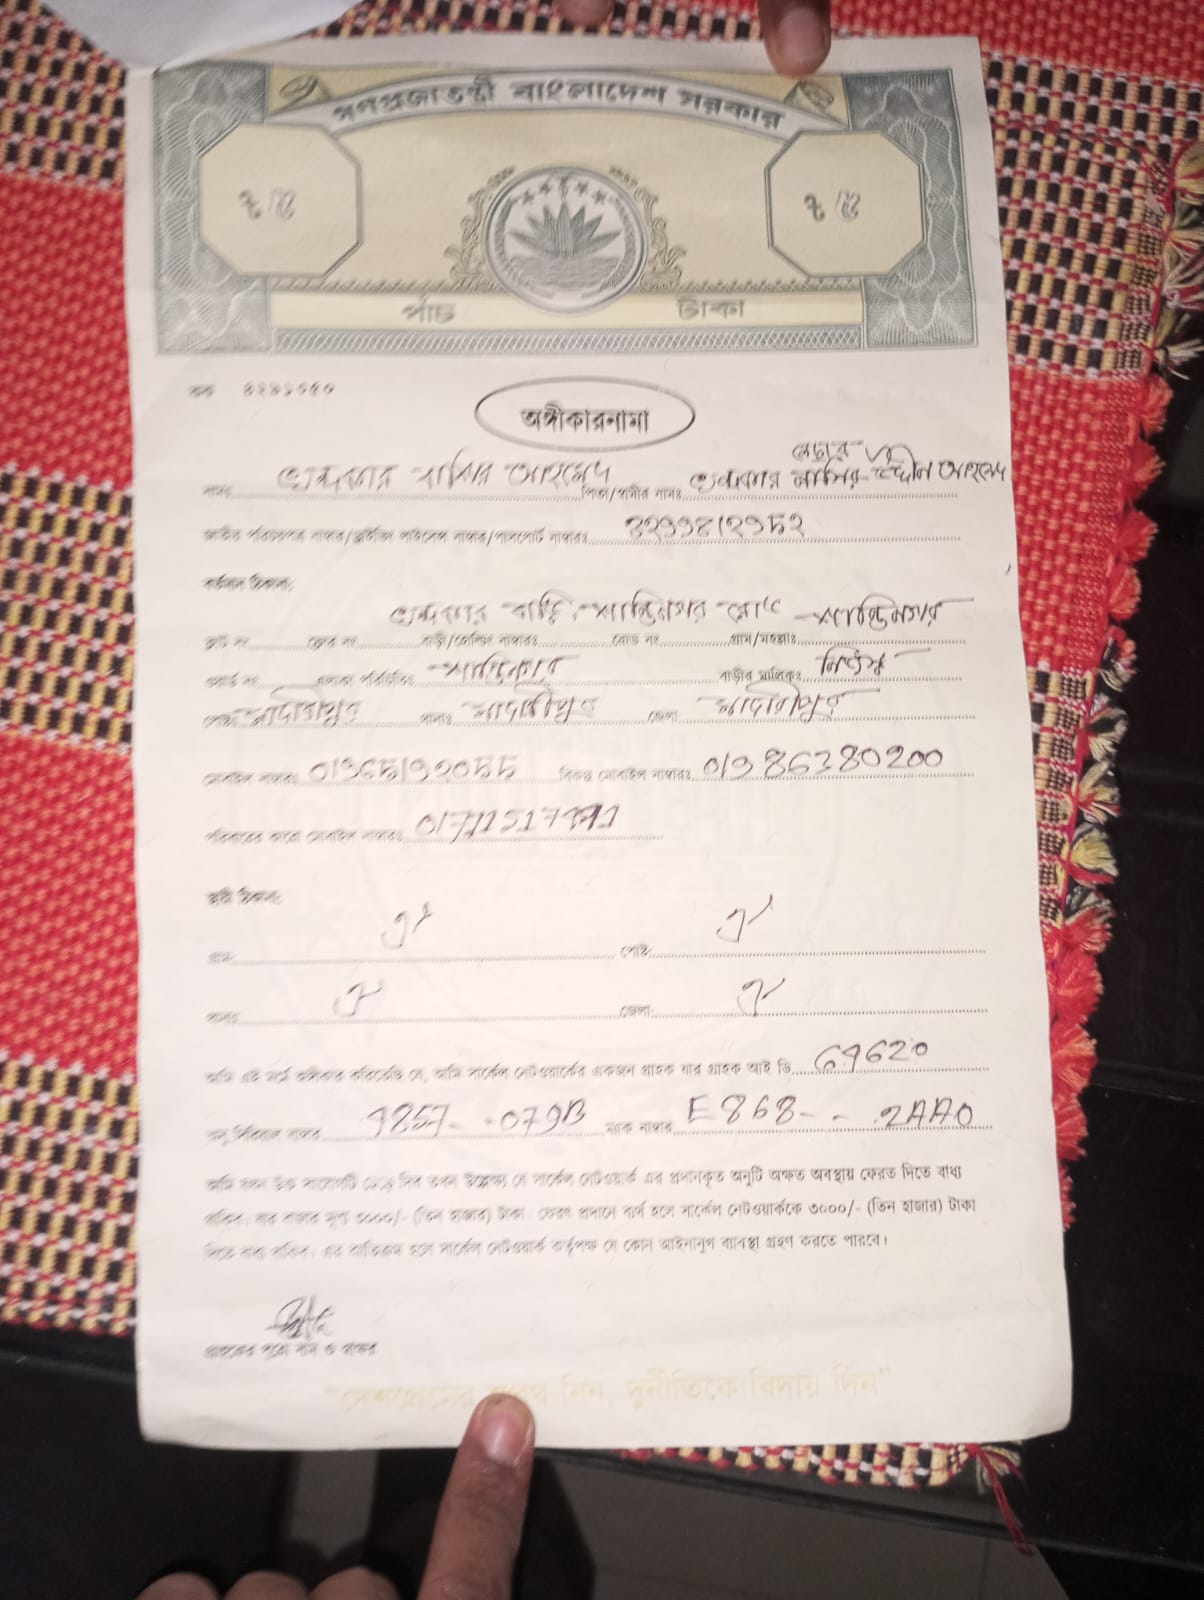 গণপ্রজাতন্ত্রী বাংলাদেশ সরকার
৳ ৫ ৳ ৫
পাঁচ টাকা
কক ৪২৯১৩৫০
অঙ্গীকারনামা
নামঃ খন্দকার নাসির আহমেদ পিতা/স্বামীর নামঃ খন্দকার নাসির উদ্দীন আহমেদ
জাতীয় পরিচয়পত্র নাম্বার/ড্রাইভিং লাইসেন্স নাম্বার/পাসপোর্ট নাম্বারঃ
বর্তমান ঠিকানা:
খন্দকার বাড়ি, শান্তিনগর রোড শান্তিনগর
ফ্লাট নং ফ্লোর নং বাড়ী/হোল্ডিং নাম্বারঃ রোড নং গ্রাম/মহল্লাঃ
ওয়ার্ড নং এলাকা পরিচিতিঃ শান্তিনগর বাড়ীর মালিকঃ নিজস্ব
পোষ্টঃ মাদারীপুর থানাঃ মাদারীপুর জেলা মাদারীপুর
মোবাইল নাম্বারঃ বিকল্প মোবাইল নাম্বারঃ 01986380200
পরিবারের কারো মোবাইল নাম্বারঃ
স্থায়ী ঠিকানা:
গ্রাম: ঐ পোষ্ট: ঐ
থানাঃ ঐ জেলা: ঐ
আমি এই মর্মে অঙ্গীকার করিতেছি যে, আমি সার্কেল নেটওয়ার্কের একজন গ্রাহক যার গ্রাহক আই ডি
অনু সিরিয়াল নাম্বার ম্যাক নাম্বার E868- - 2AA0
আমি যখন উক্ত সংযোগটি ছেড়ে দিব তখন উল্লেক্ষ্য যে সার্কেল নেটওয়ার্ক এর প্রদানকৃত অনুটি অক্ষত অবস্থায় ফেরত দিতে বাধ্য
থাকিব। যার বাজার মূল্য ৩০০০/- (তিন হাজার) টাকা। ফেরৎ প্রদানে ব্যর্থ হলে সার্কেল নেটওয়ার্ককে ৩০০০/- (তিন হাজার) টাকা
দিতে বাধ্য থাকিব। এর ব্যতিক্রম হলে সার্কেল নেটওয়ার্ক কর্তৃপক্ষ যে কোন আইনানুগ ব্যাবস্থা গ্রহণ করতে পারবে।
গ্রাহকের পুরো নাম ও স্বাক্ষর
"দেশপ্রেমের শপথ নিন, দুর্নীতিকে বিদায় দিন"